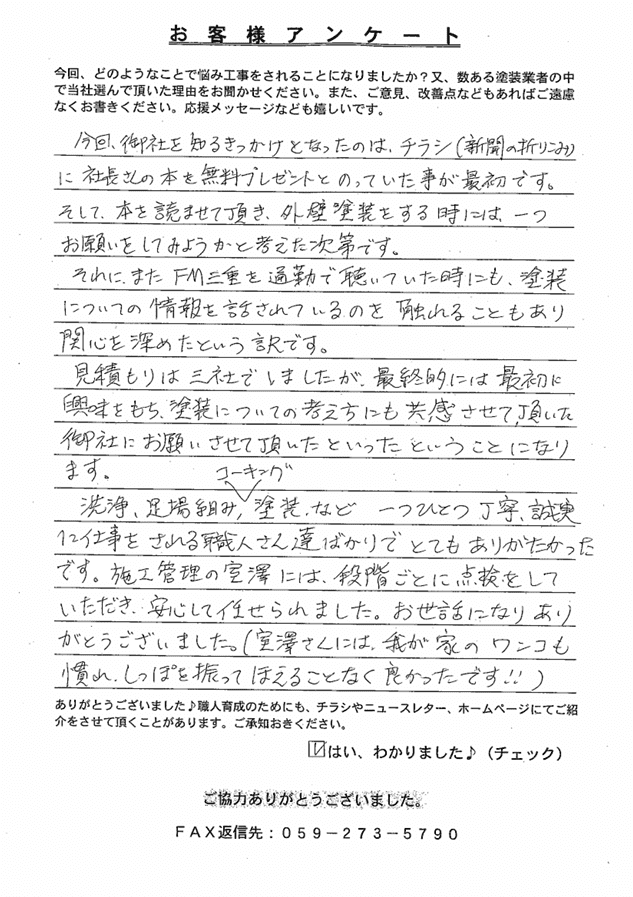 お客様アンケート
今回、どのようなことで悩み工事をされることになりましたか？又、数ある塗装業者の中
で当社選んで頂いた理由をお聞かせください。また、ご意見、改善点などもあればご遠慮
なくお書きください。応援メッセージなども嬉しいです。
今回、御社を知るきっかけとなったのは、チラシ（新聞の折りこみ）
に社長さんの本を無料プレゼントとのっていた事が最初です。
そして、本を読ませて頂き、外壁塗装をする時には、一つ
お願いをしてみようかと考えた次第です。
それに、またFM三重を通勤で聴いていた時にも、塗装
についての情報を話されているのを触れることもあり
関心を深めたという訳です。
見積もりは三社でしましたが、最終的には最初に
興味をもち、塗装についての考え方にも共感させて頂いた
御社にお願いさせて頂いたといったということになり
ます。
コーキング
洗浄、足場組み、塗装、など一つひとつ丁寧、誠実
に仕事をされる職人さん達ばかりでとてもありがたかった
です。施工管理の室澤には、段階ごとに点検をして
いただき、安心して任せられました。お世話になりあり
がとうございました。（室澤さんには、我が家のワンコも
慣れ、しっぽを振ってほえることなく良かったです!!）
ありがとうございました♪職人育成のためにも、チラシやニュースレター、ホームページにてご紹
介をさせて頂くことがあります。ご承知おきください。
☑はい、わかりました♪（チェック）
ご協力ありがとうございました。
ＦＡＸ返信先：０５９－２７３－５７９０